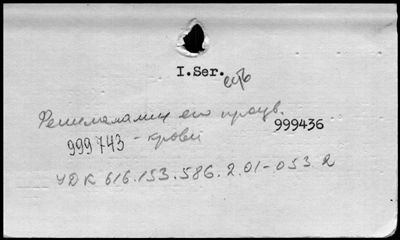 I.Ser. есть
его произв.
999436
999743 - крови
УДК 616.153.586.2.01-053.2